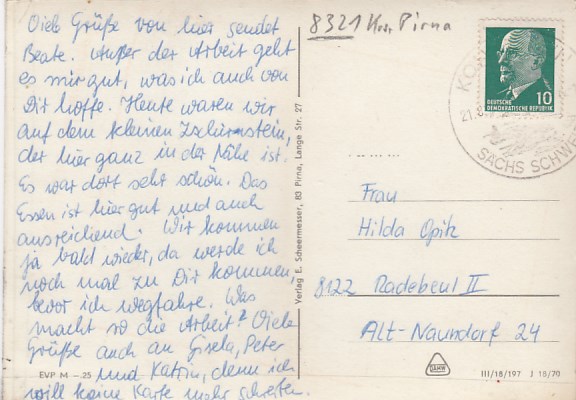 Viele Grüße von hier sendet
Beate. Außer der Arbeit geht
es mir gut, was ich auch von
Dir hoffe. Heute waren wir
auf dem kleinen Zschirnstein,
der hier ganz in der Nähe ist.
Es war dort sehr schön. Das
Essen ist hier gut und auch
ausreichend. Wir kommen
ja bald wieder, da werde ich
noch mal zu Dir kommen,
bevor ich wegfahre. Was
macht so die Arbeit? Viele
Grüße auch an Gisela, Peter
und Katrin, denn ich
will keine Karte mehr schreiben.
EVP M –.25
Verlag E. Scheermesser, 83 Pirna, Lange Str. 27
8321 Krs. Pirna
DEUTSCHE
DEMOKRATISCHE REPUBLIK
10
SÄCHS SCHWE
Frau
Hilda Opitz
8122 Radebeul II
Alt-Naundorf 24
DEWAG
III/18/197 J 18/70